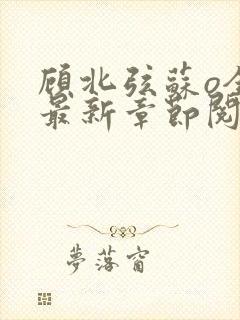 顾北弦蘇o全
最新章節閱
夢落窗